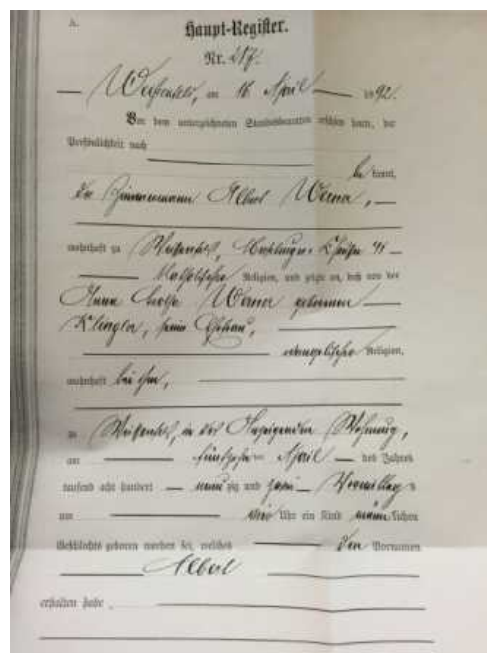 A.
Haupt-Register.
Nr. 287.
Weißenfels, am 16 April 1892.
Vor dem unterzeichneten Standesbeamten erschien heute, der
Persönlichkeit nach
be kannt,
der Zimmermann Albert Werner,
wohnhaft zu Weißenfels,
katholischer Religion, und zeigte an, daß von der
Anna Werner geborenen
Klingler, seiner Ehefrau,
evangelischer Religion,
wohnhaft bei ihm,
zu Weißenfels, in der Wohnung,
am fünfzehn April des Jahres
tausend acht hundert neun zig und zwei Vormittags
um vier Uhr ein Kind männlichen
Geschlechts geboren worden sei, welches den Vornamen
Albert
erhalten habe.